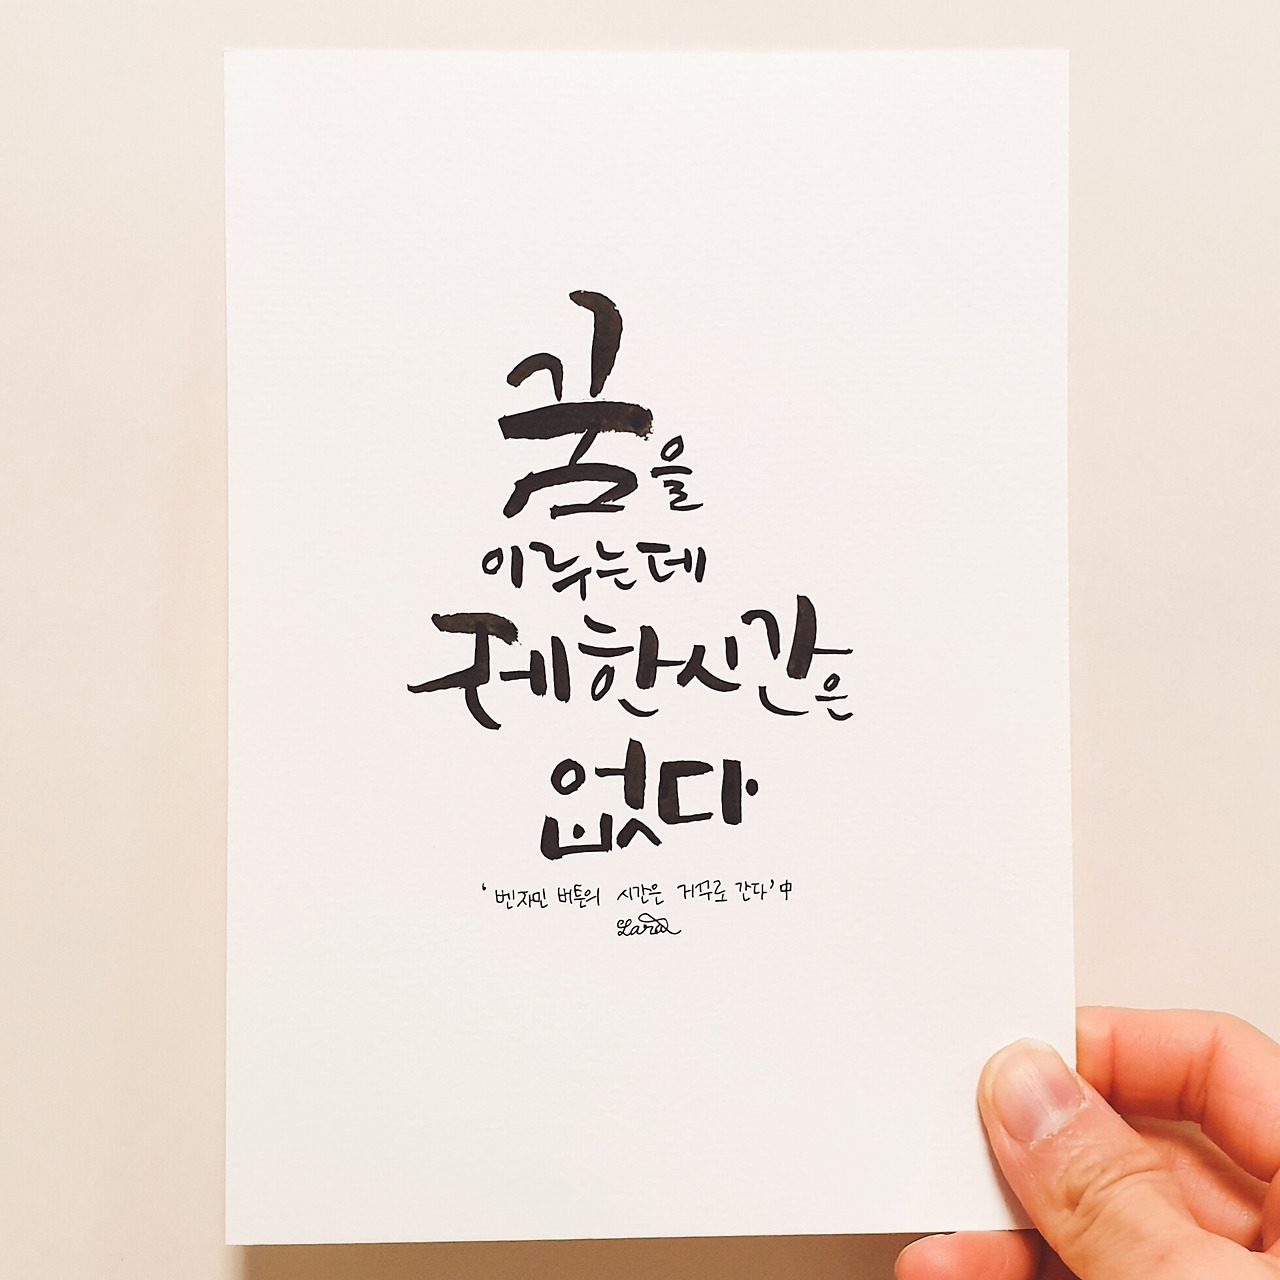 꿈을
이루는데
제한시간은
없다
'벤자민 버튼의 시간은 거꾸로 간다'中
Lara